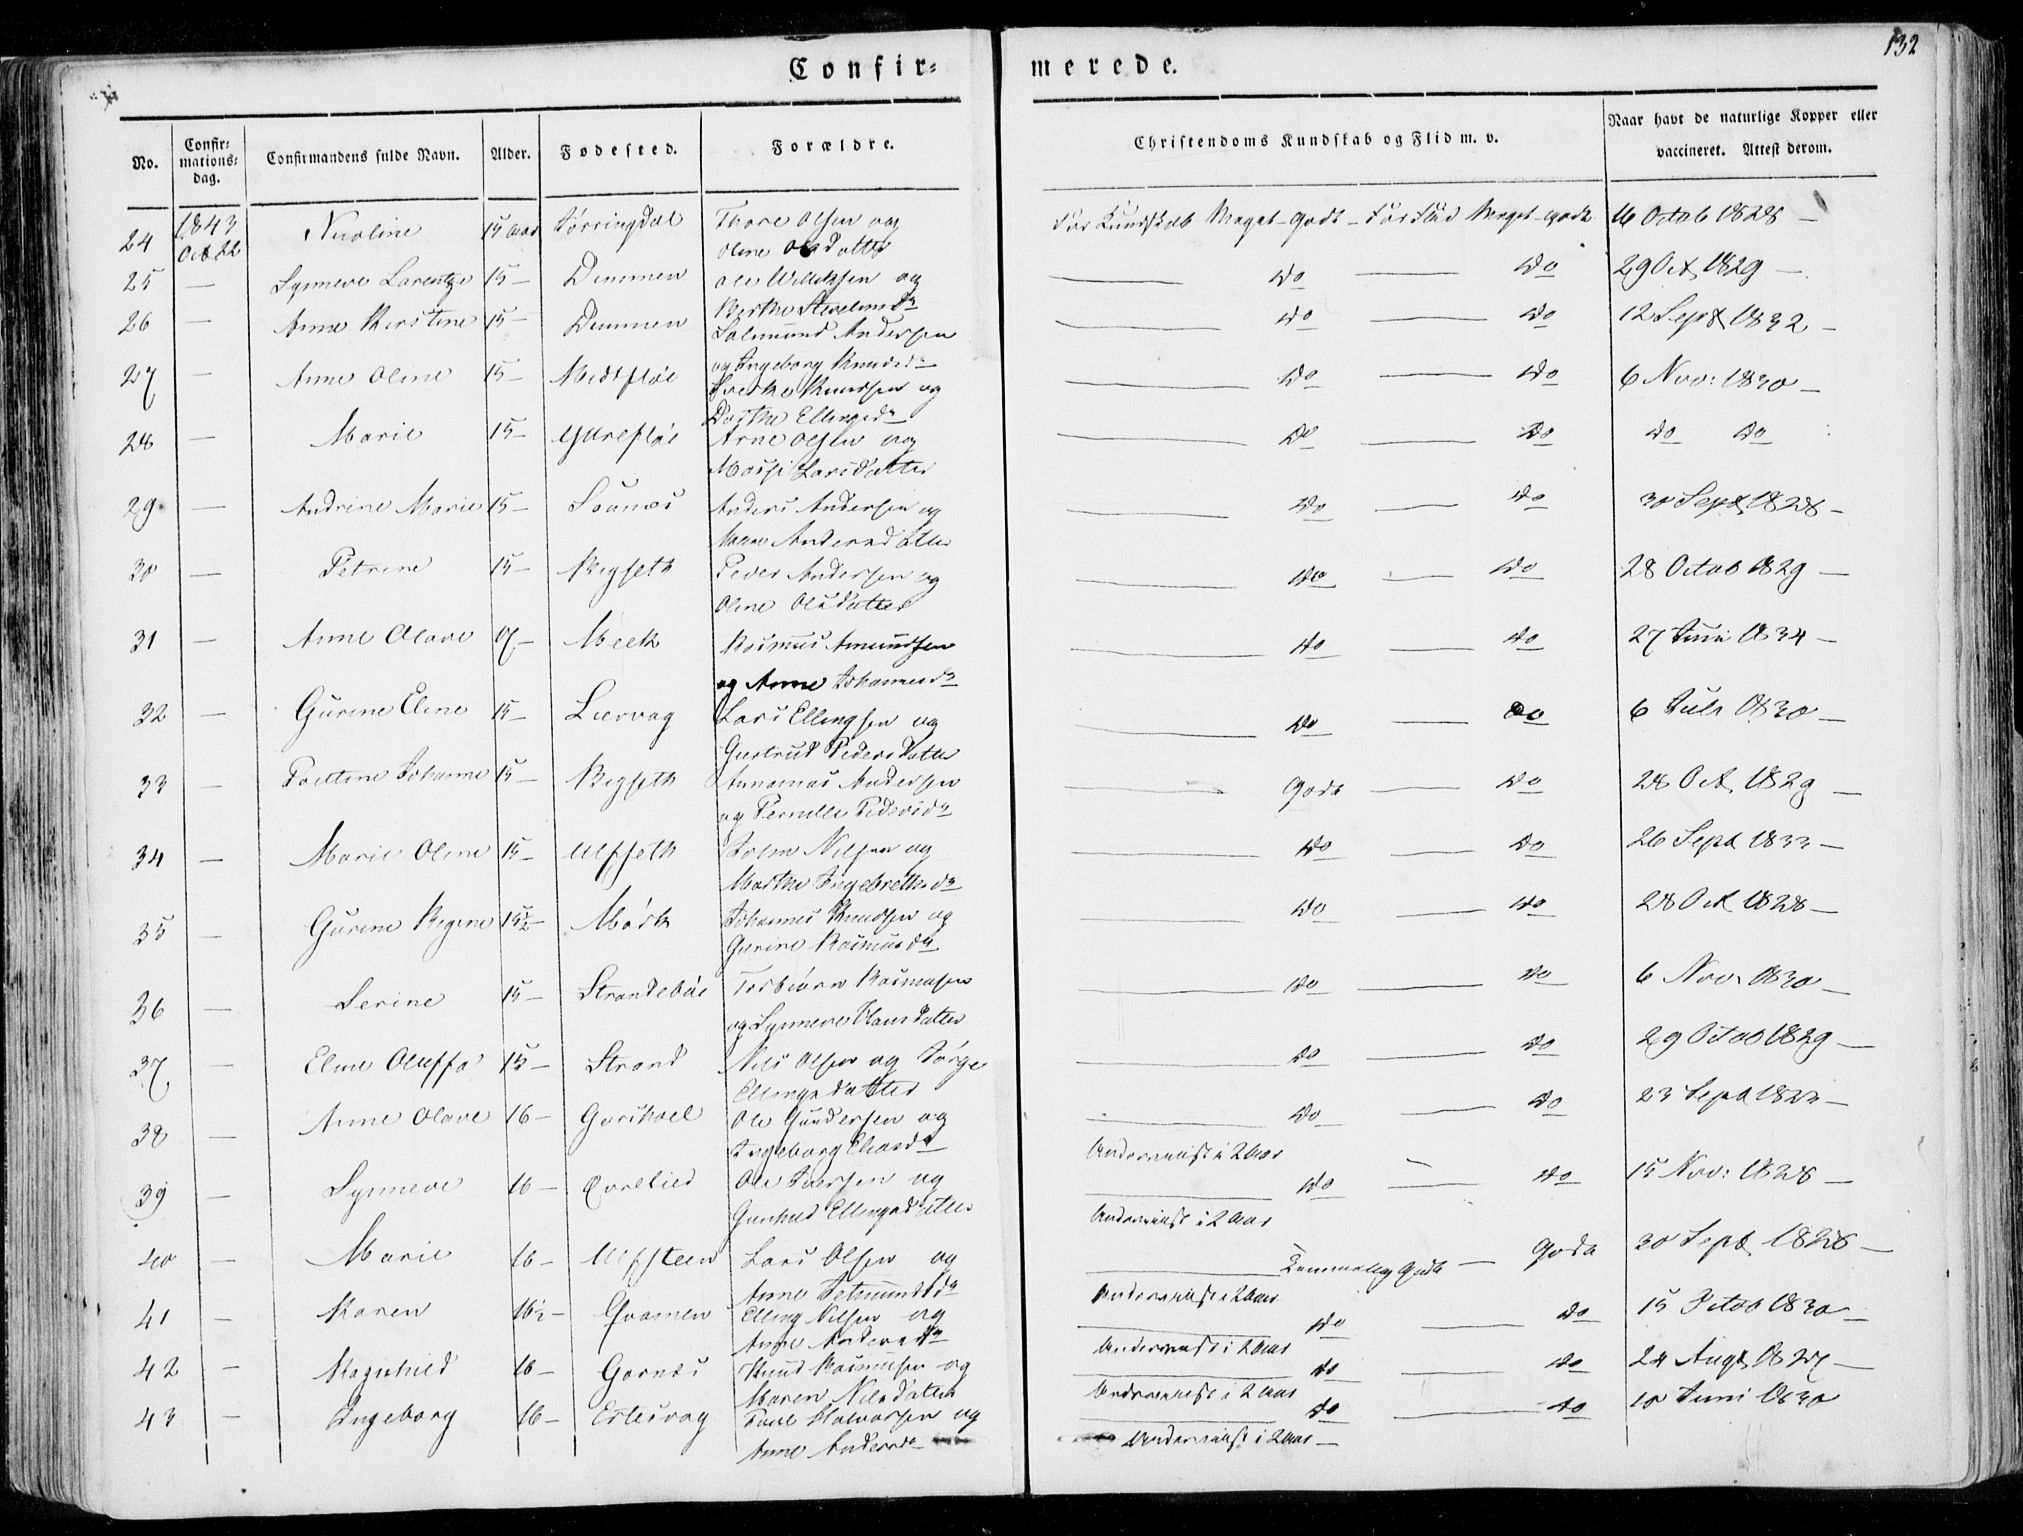 132
Confir= merede.
No. Confir= mations= dag. Confirmandens fulde Navn. Alder. Fødested. Forældre. Christendoms Kundskab og Flid m. v. Naar havt de naturlige Kopper eller vaccineret. Attest derom.
24 1843 Oct 22 Nicoline 15 Aar Tørringdal Thore Olsen og For Kundskab Meget-Godt - For Flid Meget-Godt 16 Octob 1828 —
Oline Olsdatter
25 — Synneve Lorentze 15 — Dimmen Ole Willichsen og — Do — Do 29 Oct 1829 —
26 — Anne Kirstine 15 — Dimmen Salmund Andersen — Do — Do 12 Sept 1832 —
og Ingeborg Knudsdr
27 — Anne Oline 15 — Midtfløe Knudsen og — Do — Do 6 Nov: 1830 —
Dorthe Ellingsdr
28 — Marie 15 — Yttrefløe Arne Olsen og — Do — Do Do Do
Larsdatter
29 — Andrine Marie 15 — Sounæs Anders Andersen og — Do — Do 30 Sept 1828 —
Andersdatter
30 — Petrine 15 — Rygseth Peder Andersen og — Do — Do 28 Octob 1829 —
Oline Olsdatter
31 — Anne Olave 17 — Meek Rasmus Amundsen — Do — Do 27 Juni 1834 —
og Anne Johannesdr
32 — Gurine Eline 15 — Liervag Lars Ellingsen og — Do — Do 6 Juli 1830 —
Gurtrud Pedersdatter
33 — Johanne 15 — Rygseth Andersen — Godt — Do 28 Oct 1829 —
og Pernille Pedersdr
34 — Marie Oline 15 — Ulfseth Nilsen og — Do — Do 26 Sept 1833 —
Marthe Ingebrethsdr
35 — Gurine Regine 15½ — Mørk Johannes Knudsen og — Do — Do 28 Oct 1828 —
Gurine Rasmusdr
36 — Serine 15 — Strandebøe Torbiørn Rasmusen — Do — Do 6 Nov. 1830 —
og Synneve Clausdatter
37 — Eline Oluffa 15 — Strand Nils Olsen og — Do — Do 29 Octob 1829 —
Ellingsdatter
38 — Anne Olave 16 — Ole Gundersen og — Do — Do 23 Sept 1833 —
Ingeborg Eliasdr Underviist i 2 Aar
39 — Synneve 16 — Ole Iversen og — Do — Do 15 Nov: 1828 —
Gunhild Ellingsdatter Underviist i 2 Aar
40 — Marie 16 — Ulfsteen Lars Olsen og — Temmelig Godt — Godt 30 Sept 1828 —
Anne Underviist i 2 Aar
41 — Karen 16½ — Qvamen Elling Nilsen og — Do — Do 15 Octob 1830 —
Anne Andersdr Underviist i 2 Aar
42 — Ragnhild 16 — Gornæs Knud Rasmusen og — Do — Do 24 Augt 1827 —
Maren Nilsdatter Underviist i 2 Aar
43 — Ingeborg 16 — Estesvag Halvorsen og — Do — Do 10 Juni 1830
Anne Andersdr — Underviist i 2 Aar —